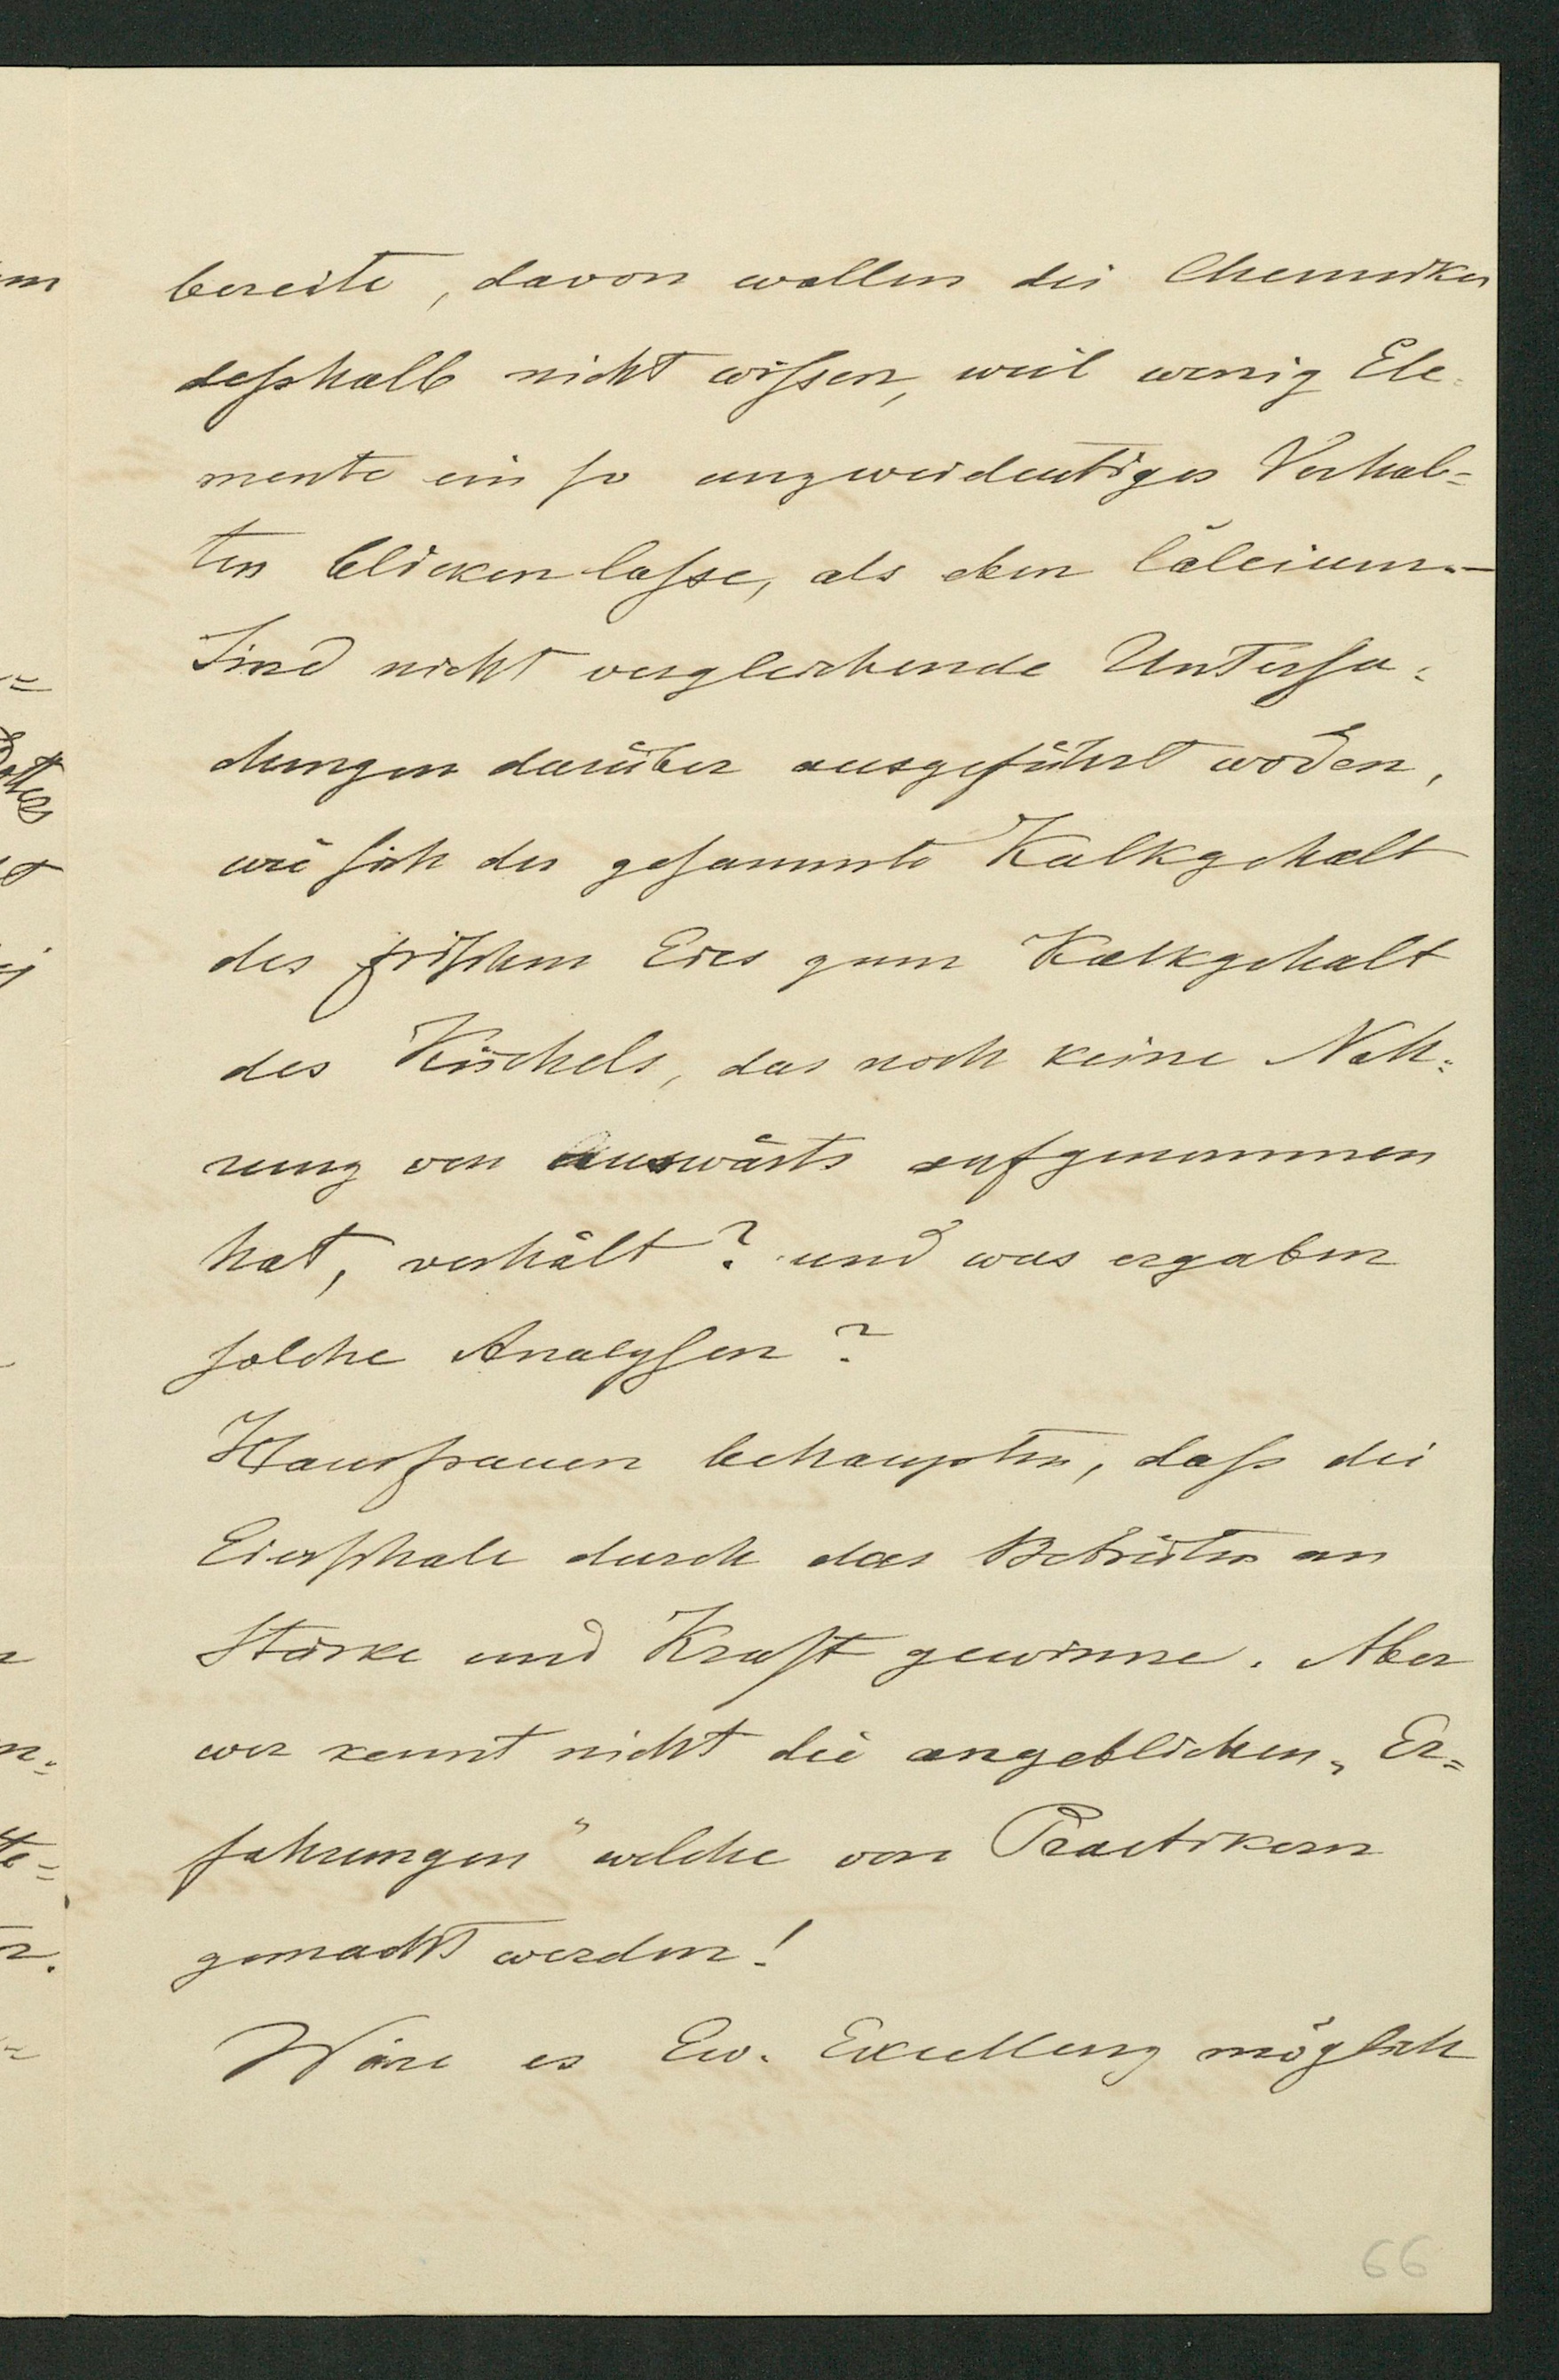 bereite, davon wollen die Chemiker
deßhalb nicht wissen, weil wenig Ele=
mente ein so unzweideutiges Verhal=
ten blicken lasse, als eben Calcium.–
Sind nicht vergleichende Untersu=
chungen darüber ausgeführt worden,
wie sich der gesammte Kalkgehalt
des frischen Eies zum Kalkgehalt
des Küchels, das noch keine Nah=
rung von auswärts aufgenommen
hat, verhält? und was ergaben
solche Analysen?
Hausfrauen behaupten, daß die
Eierschale durch das Bebrüten an
Stärke und Kraft gewinne. Aber
wer kennt nicht die angeblichen „Er=
fahrungen“ welche von Practikern
gemacht werden!
Wäre es Ew. Excellenz möglich
66